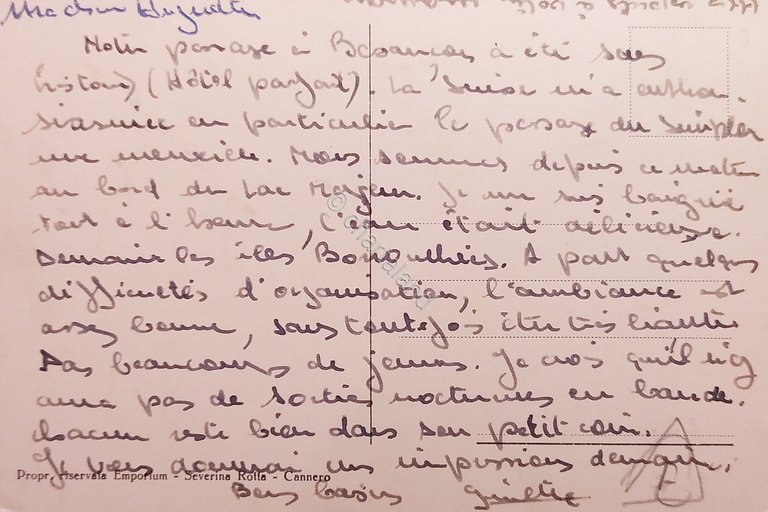 Madame Huguette
Notre passage à Besançon a été sans
histoire (Hôtel parfait). La Suisse m'a enthou-
siasmée en particulier le passage du Simplon
une merveille. Nous sommes depuis ce matin
au bord du Lac Majeur. Je me suis baignée
tout à l'heure, l'eau était délicieuse.
Demain les îles Borromées. A part quelques
difficultés d'organisation, l'ambiance est
assez bonne, sans toutefois être très liante.
Pas beaucoup de jeunes. Je crois qu'il n'y
aura pas de sorties nocturnes en bande.
chacun reste bien dans son petit coin.
Je vous donnerai mes impressions demain.
Propr. riservata Emporium - Severina Rolla - Cannero
Bons baisers Ginette
© chanaland